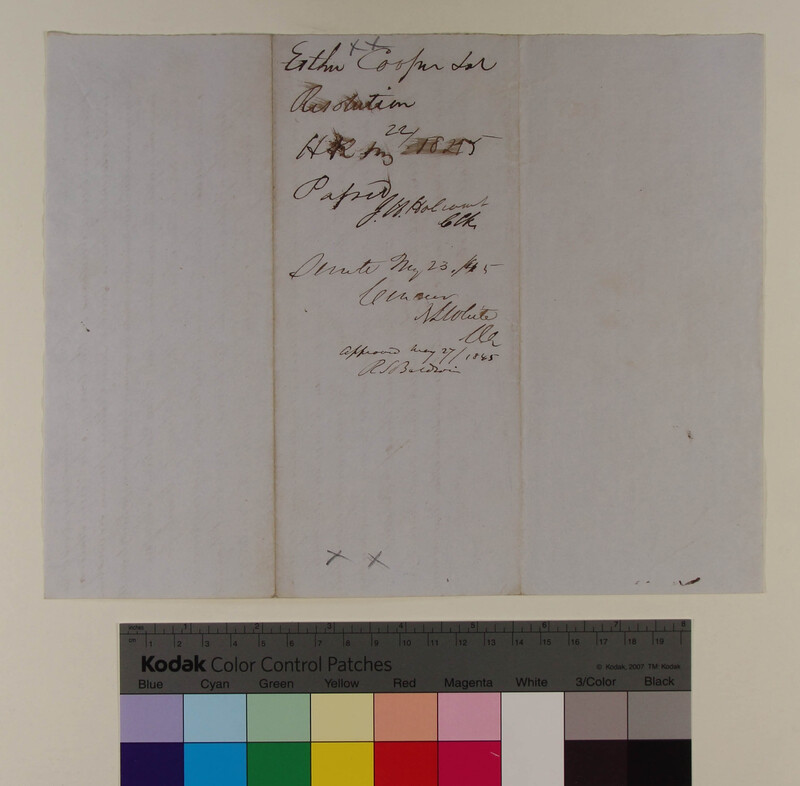 Esther Cooper Sol
Resolution
HR My 22/ 1845
Passed
J. H. Holcomb
Clk
Senate My 23, /45
Concur
Clk
Approved May 27/ 1845
R S Baldwin
inches 1 2 3 4 5 6 7 8
cm 1 2 3 4 5 6 7 8 9 10 11 12 13 14 15 16 17 18 19
Kodak Color Control Patches
© Kodak, 2007 TM: Kodak
Blue Cyan Green Yellow Red Magenta White 3/Color Black